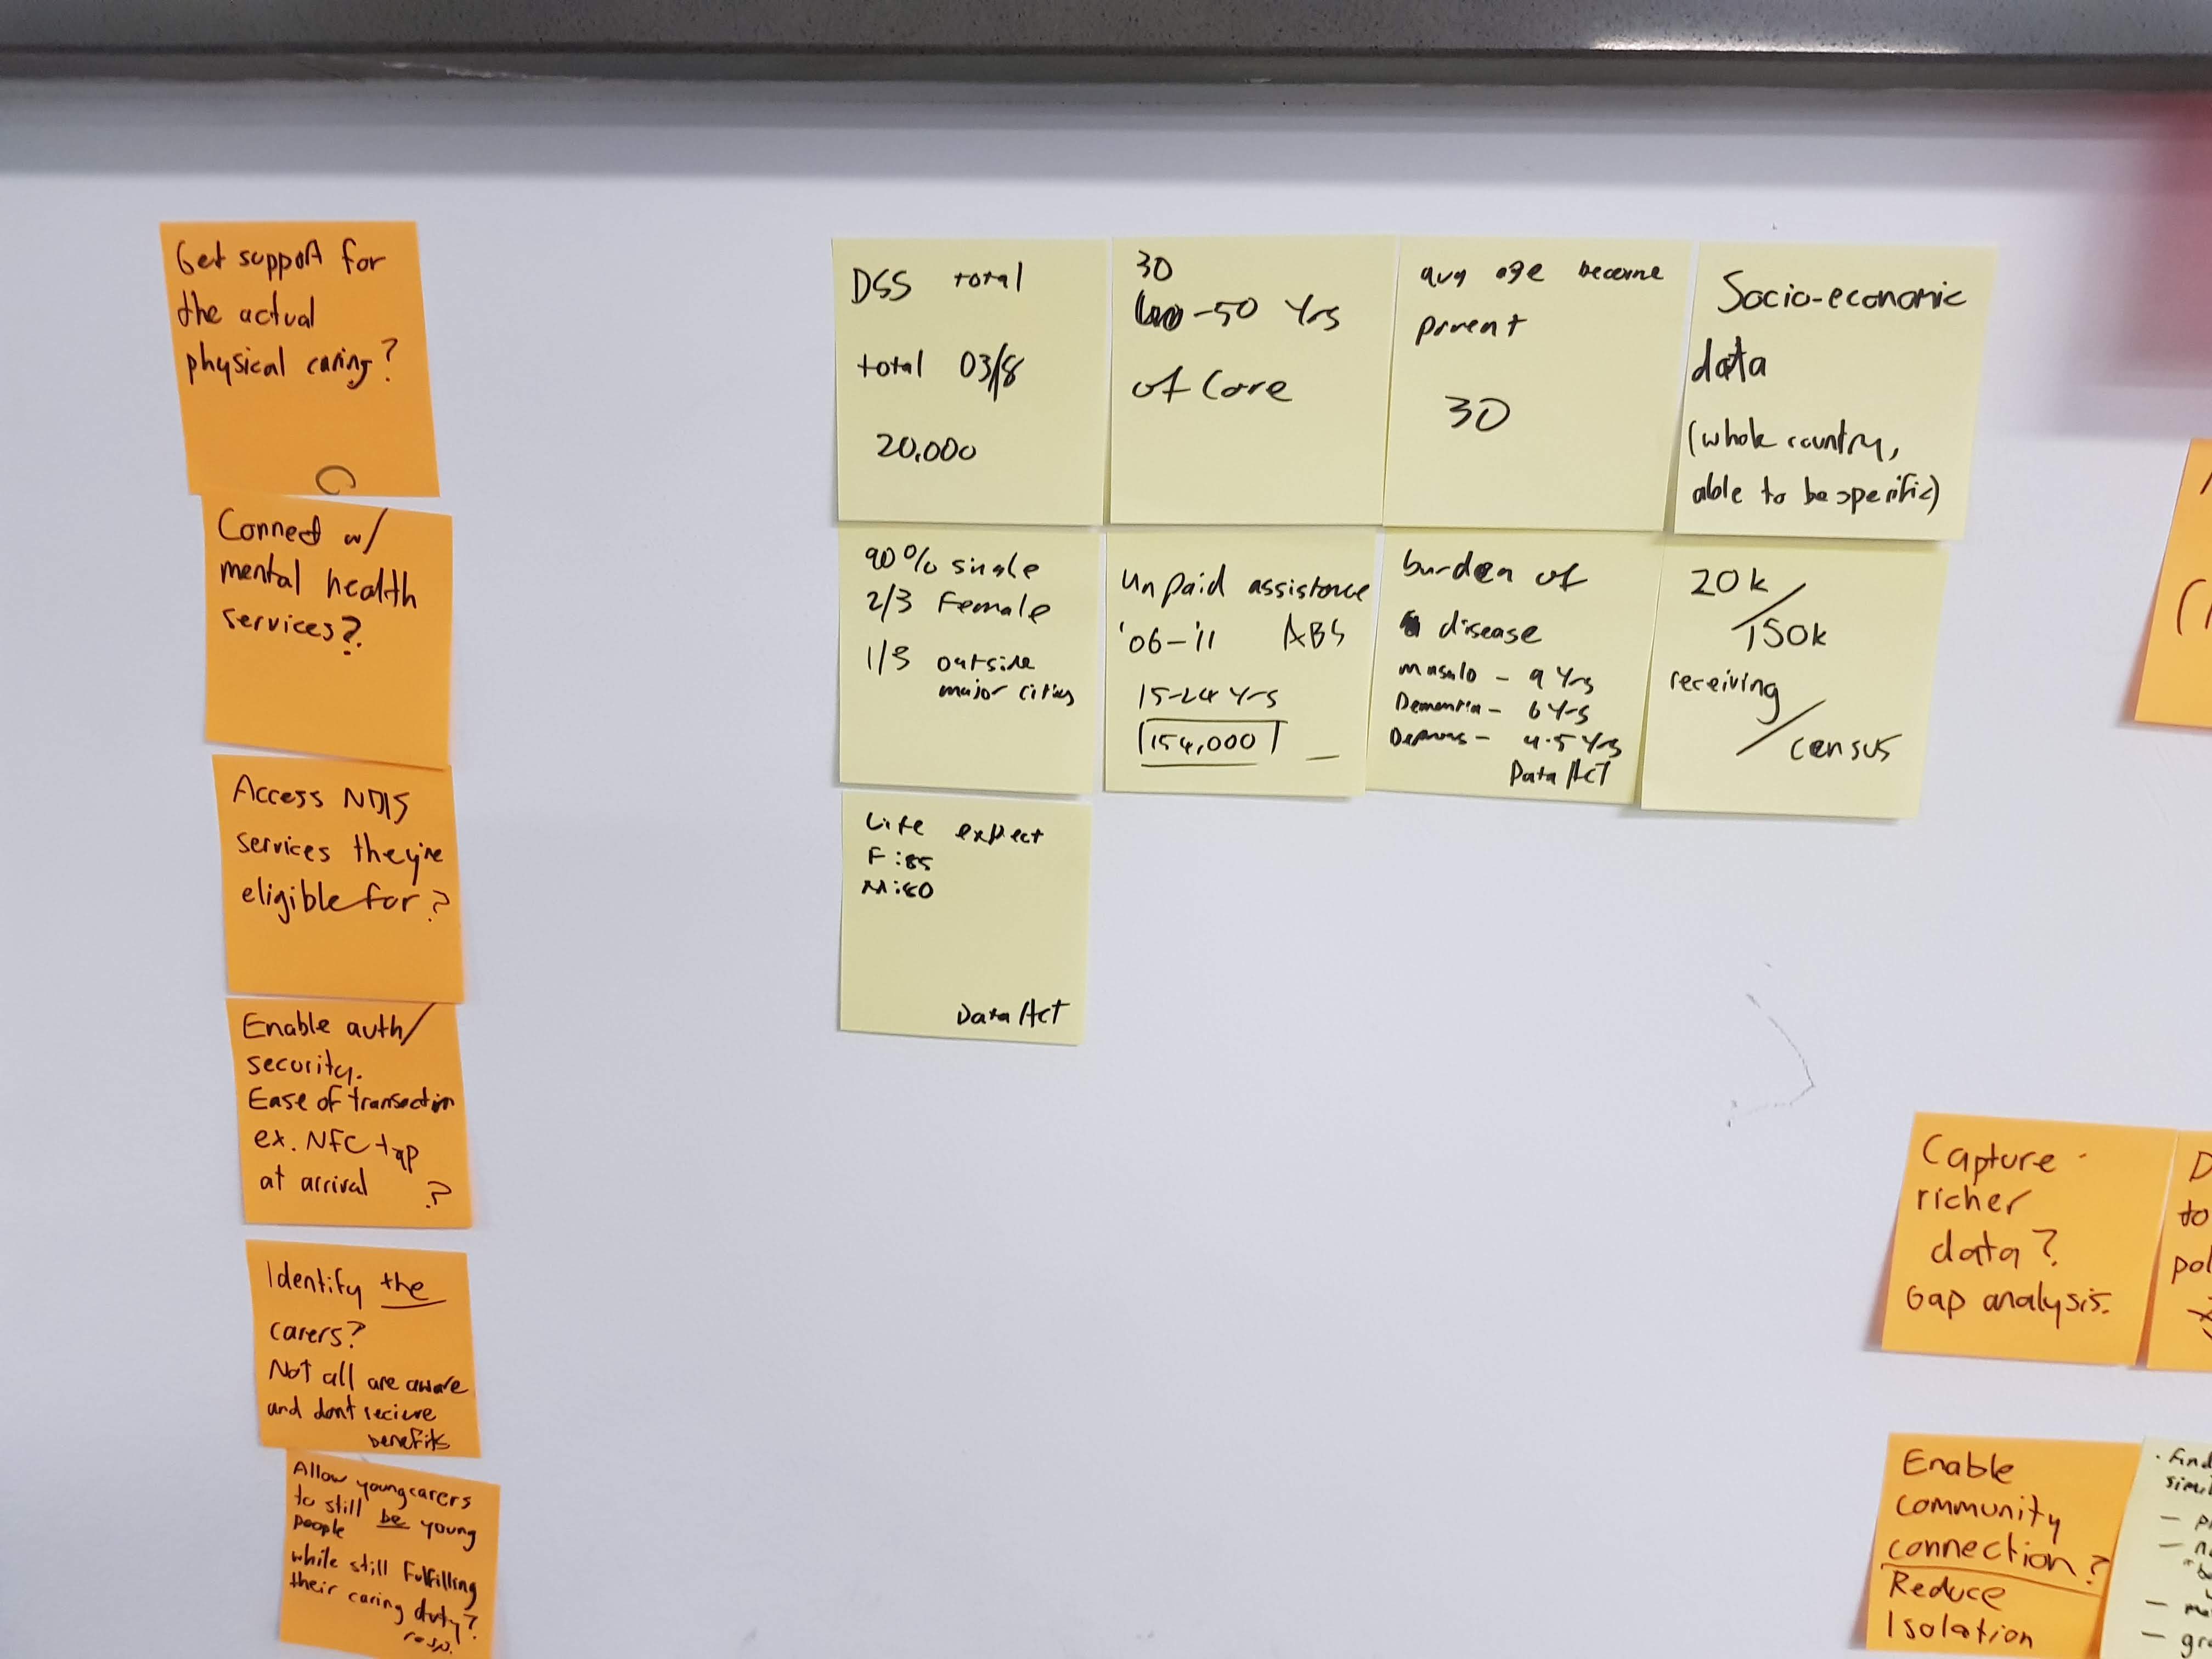 Get support for
the actual
physical caring?
Connect w/
mental health
services?
Access NDIS
services they're
eligible for?
Enable auth/
security.
Ease of transaction
ex. NFC tap
at arrival ?
Identify the
carers?
Not all are aware
and dont recieve
benefits
Allow young carers
to still be young
people
while still fulfilling
their caring duty?
resp.
DSS total
total 03/8
20,000
30
-50 Yrs
of Care
avg age become
parent
30
Socio-economic
data
(whole country,
able to be specific)
90% single
2/3 Female
1/3 outside
major cities
Unpaid assistance
'06-'11 ABS
15-24 Yrs
154,000
burden of
disease
- 9 Yrs
Dementia - 6 Yrs
- 4.5 Yrs
Data/ACT
20k/
150k
receiving/
census
Life expect
F:85
M:80
Data/ACT
Capture
richer
data?
Gap analysis.
D
to
pol
Enable
community
connection?
Reduce
Isolation
. find
simil
- p
- n
- me
- gr